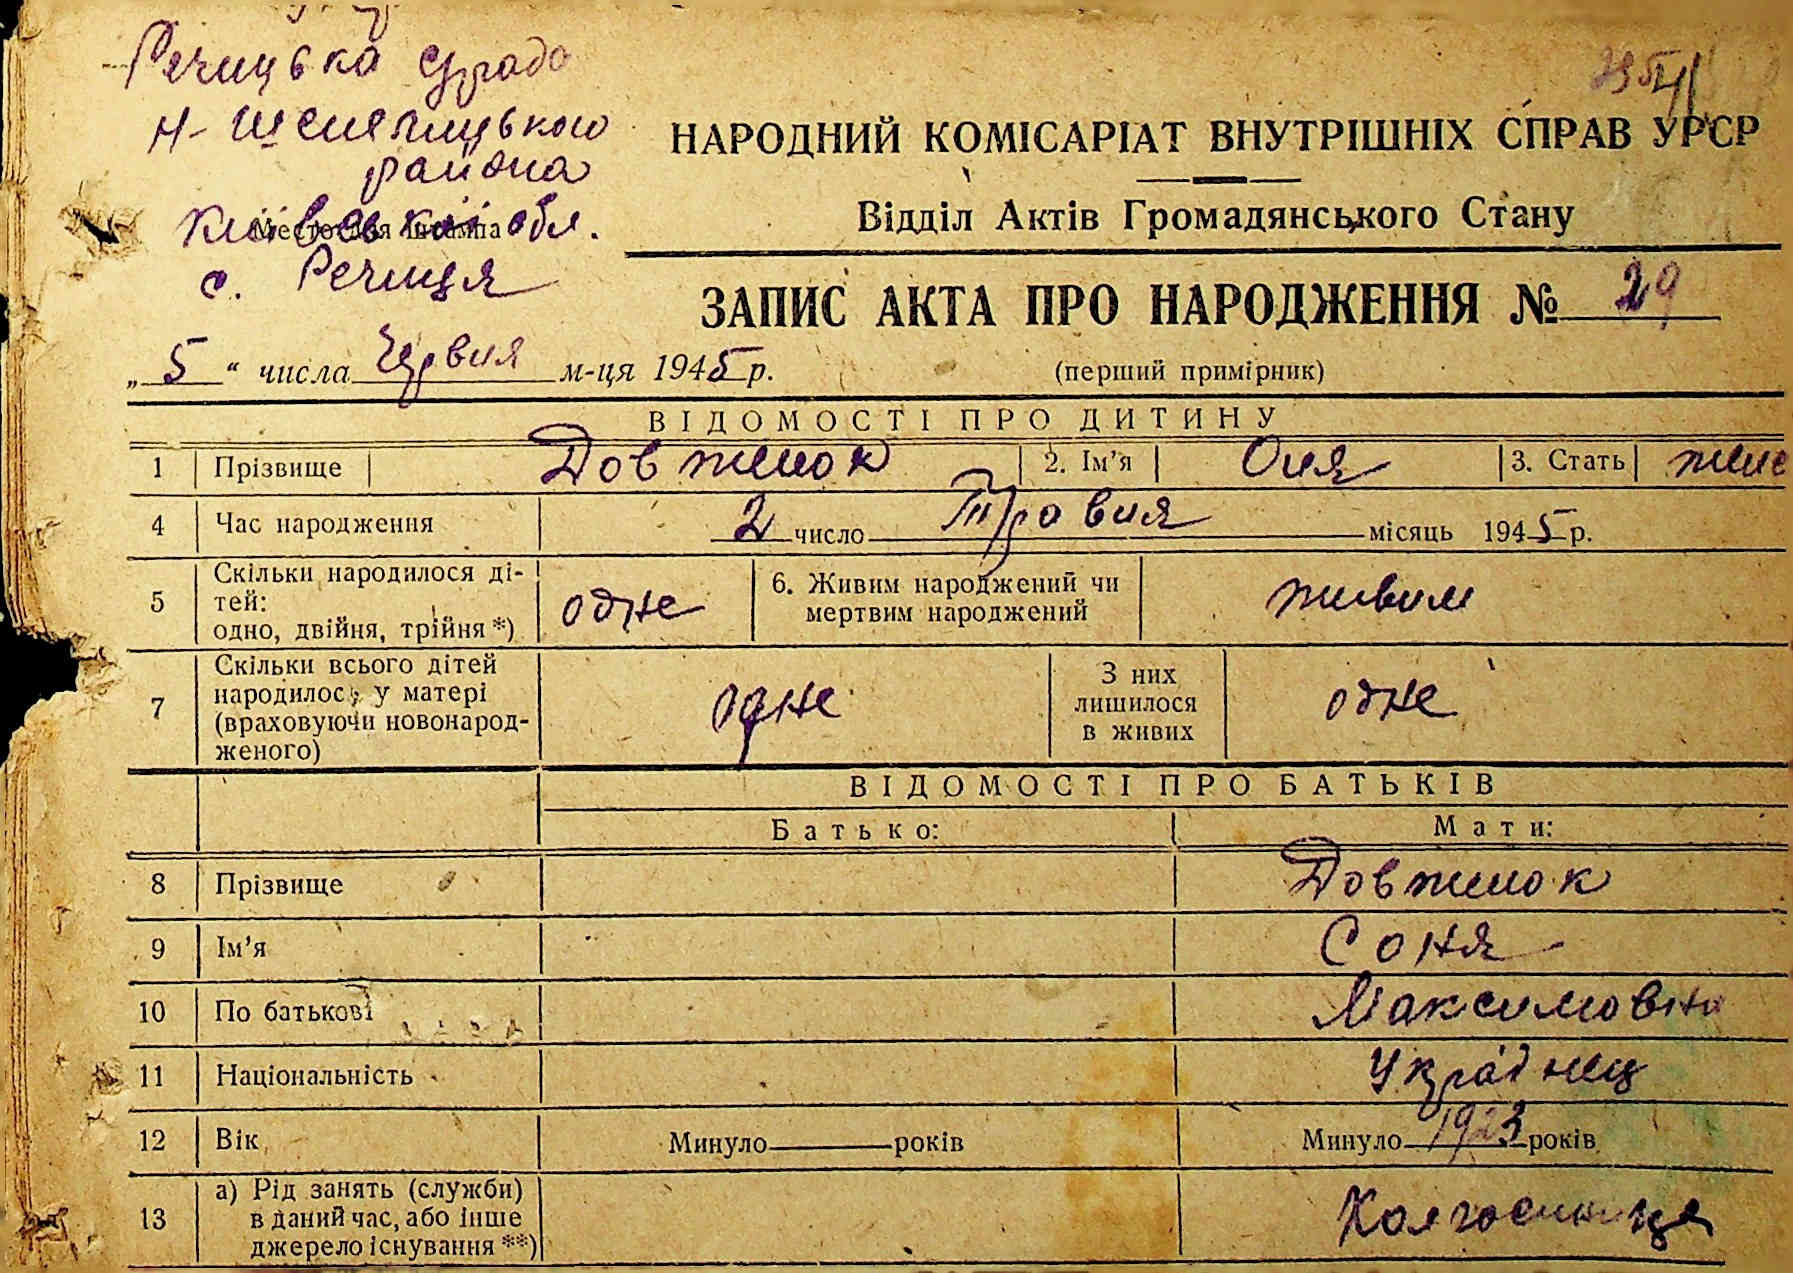 Речицька с/рада
Н-Шепелицького
района
Київської обл.
Место для штампа
с. Речиця
НАРОДНИЙ КОМІСАРІАТ ВНУТРІШНІХ СПРАВ УРСР
Відділ Актів Громадянського Стану
ЗАПИС АКТА ПРО НАРОДЖЕННЯ № 29
„5“ числа Червня м-ця 1945 р. (перший примірник)
ВІДОМОСТІ ПРО ДИТИНУ
1 Прізвище Довженок 2. Ім'я Оня 3. Стать жін
4 Час народження 2 число Травня місяць 1945 р.
5 Скільки народилося ді-
тей:
одно, двійня, трійня *) одне 6. Живим народжений чи
мертвим народжений живим
7 Скільки всього дітей
народилось у матері
(враховуючи новонарод-
женого) одне З них
лишилося
в живих одне
ВІДОМОСТІ ПРО БАТЬКІВ
Батько: Мати:
8 Прізвище Довженок
9 Ім'я Соня
10 По батькові Максимовна
11 Національність Українец
12 Вік Минуло років Минуло 1923 років
13 а) Рід занять (служби)
в даний час, або інше
джерело існування **) Колгоспниця